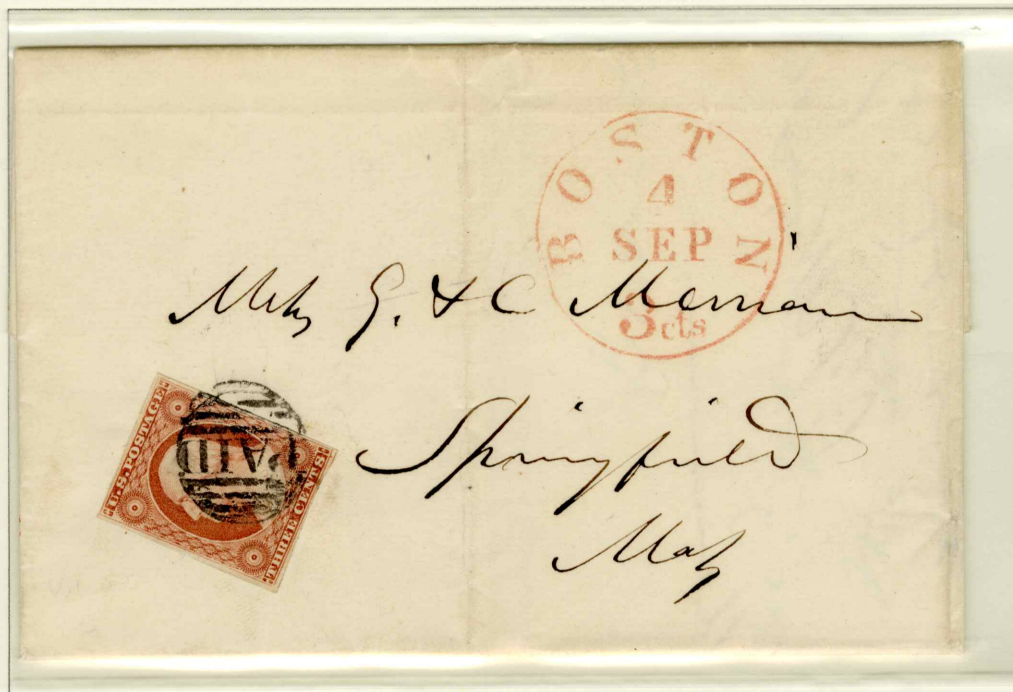 BOSTON
4
SEP
3cts
Mess G. & C Merriam
Springfield
Mass
U.S. POSTAGE
PAID
THREE CENTS